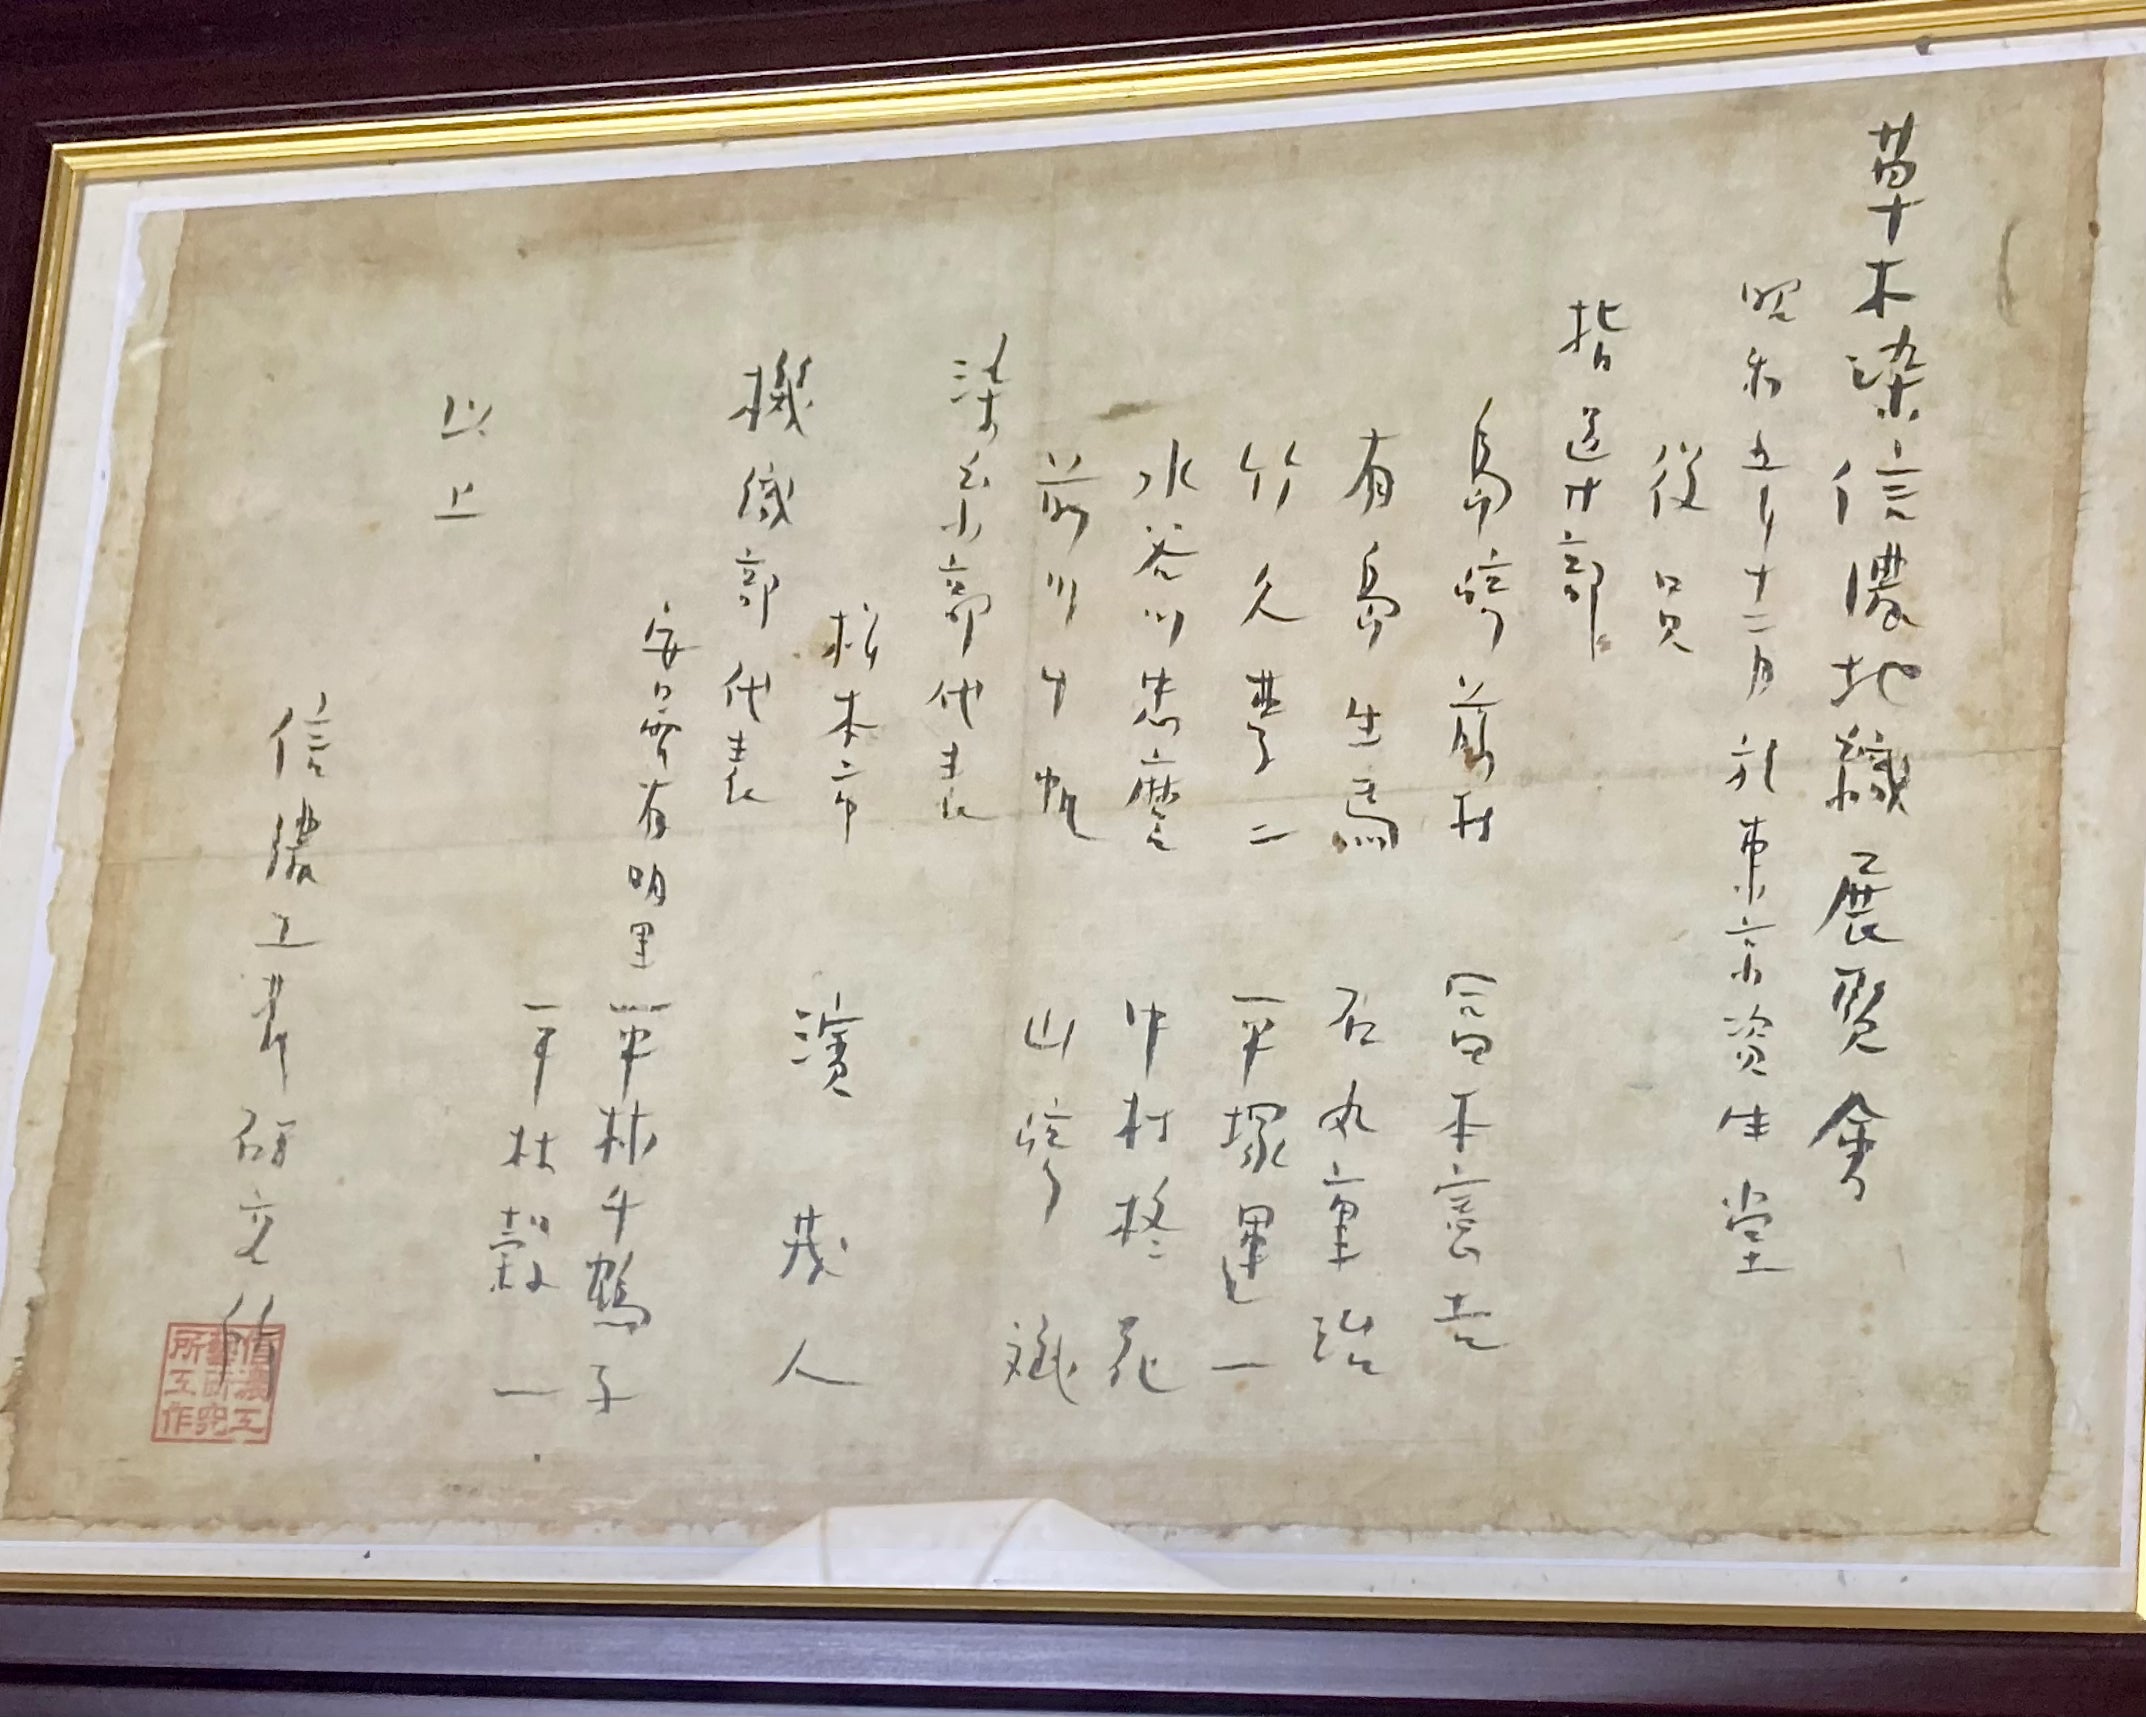 草木染信濃地織展覽會
昭和五年十二月於東京資生堂
役員
指導部
島崎藤村 富本憲吉
有島生馬 石丸重治
竹久夢二 平塚運一
水谷川忠麿 中村柊花
前川千帆 山崎斌
染糸部代表
松本市 濱茂人
機織部代表
安曇有明里 平林千鶴子
平林穀一
以上
信濃工芸研究所
信濃工
藝研究
所工作